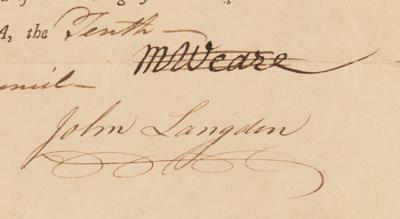 A, the Tenth
MWeare
John Langdon